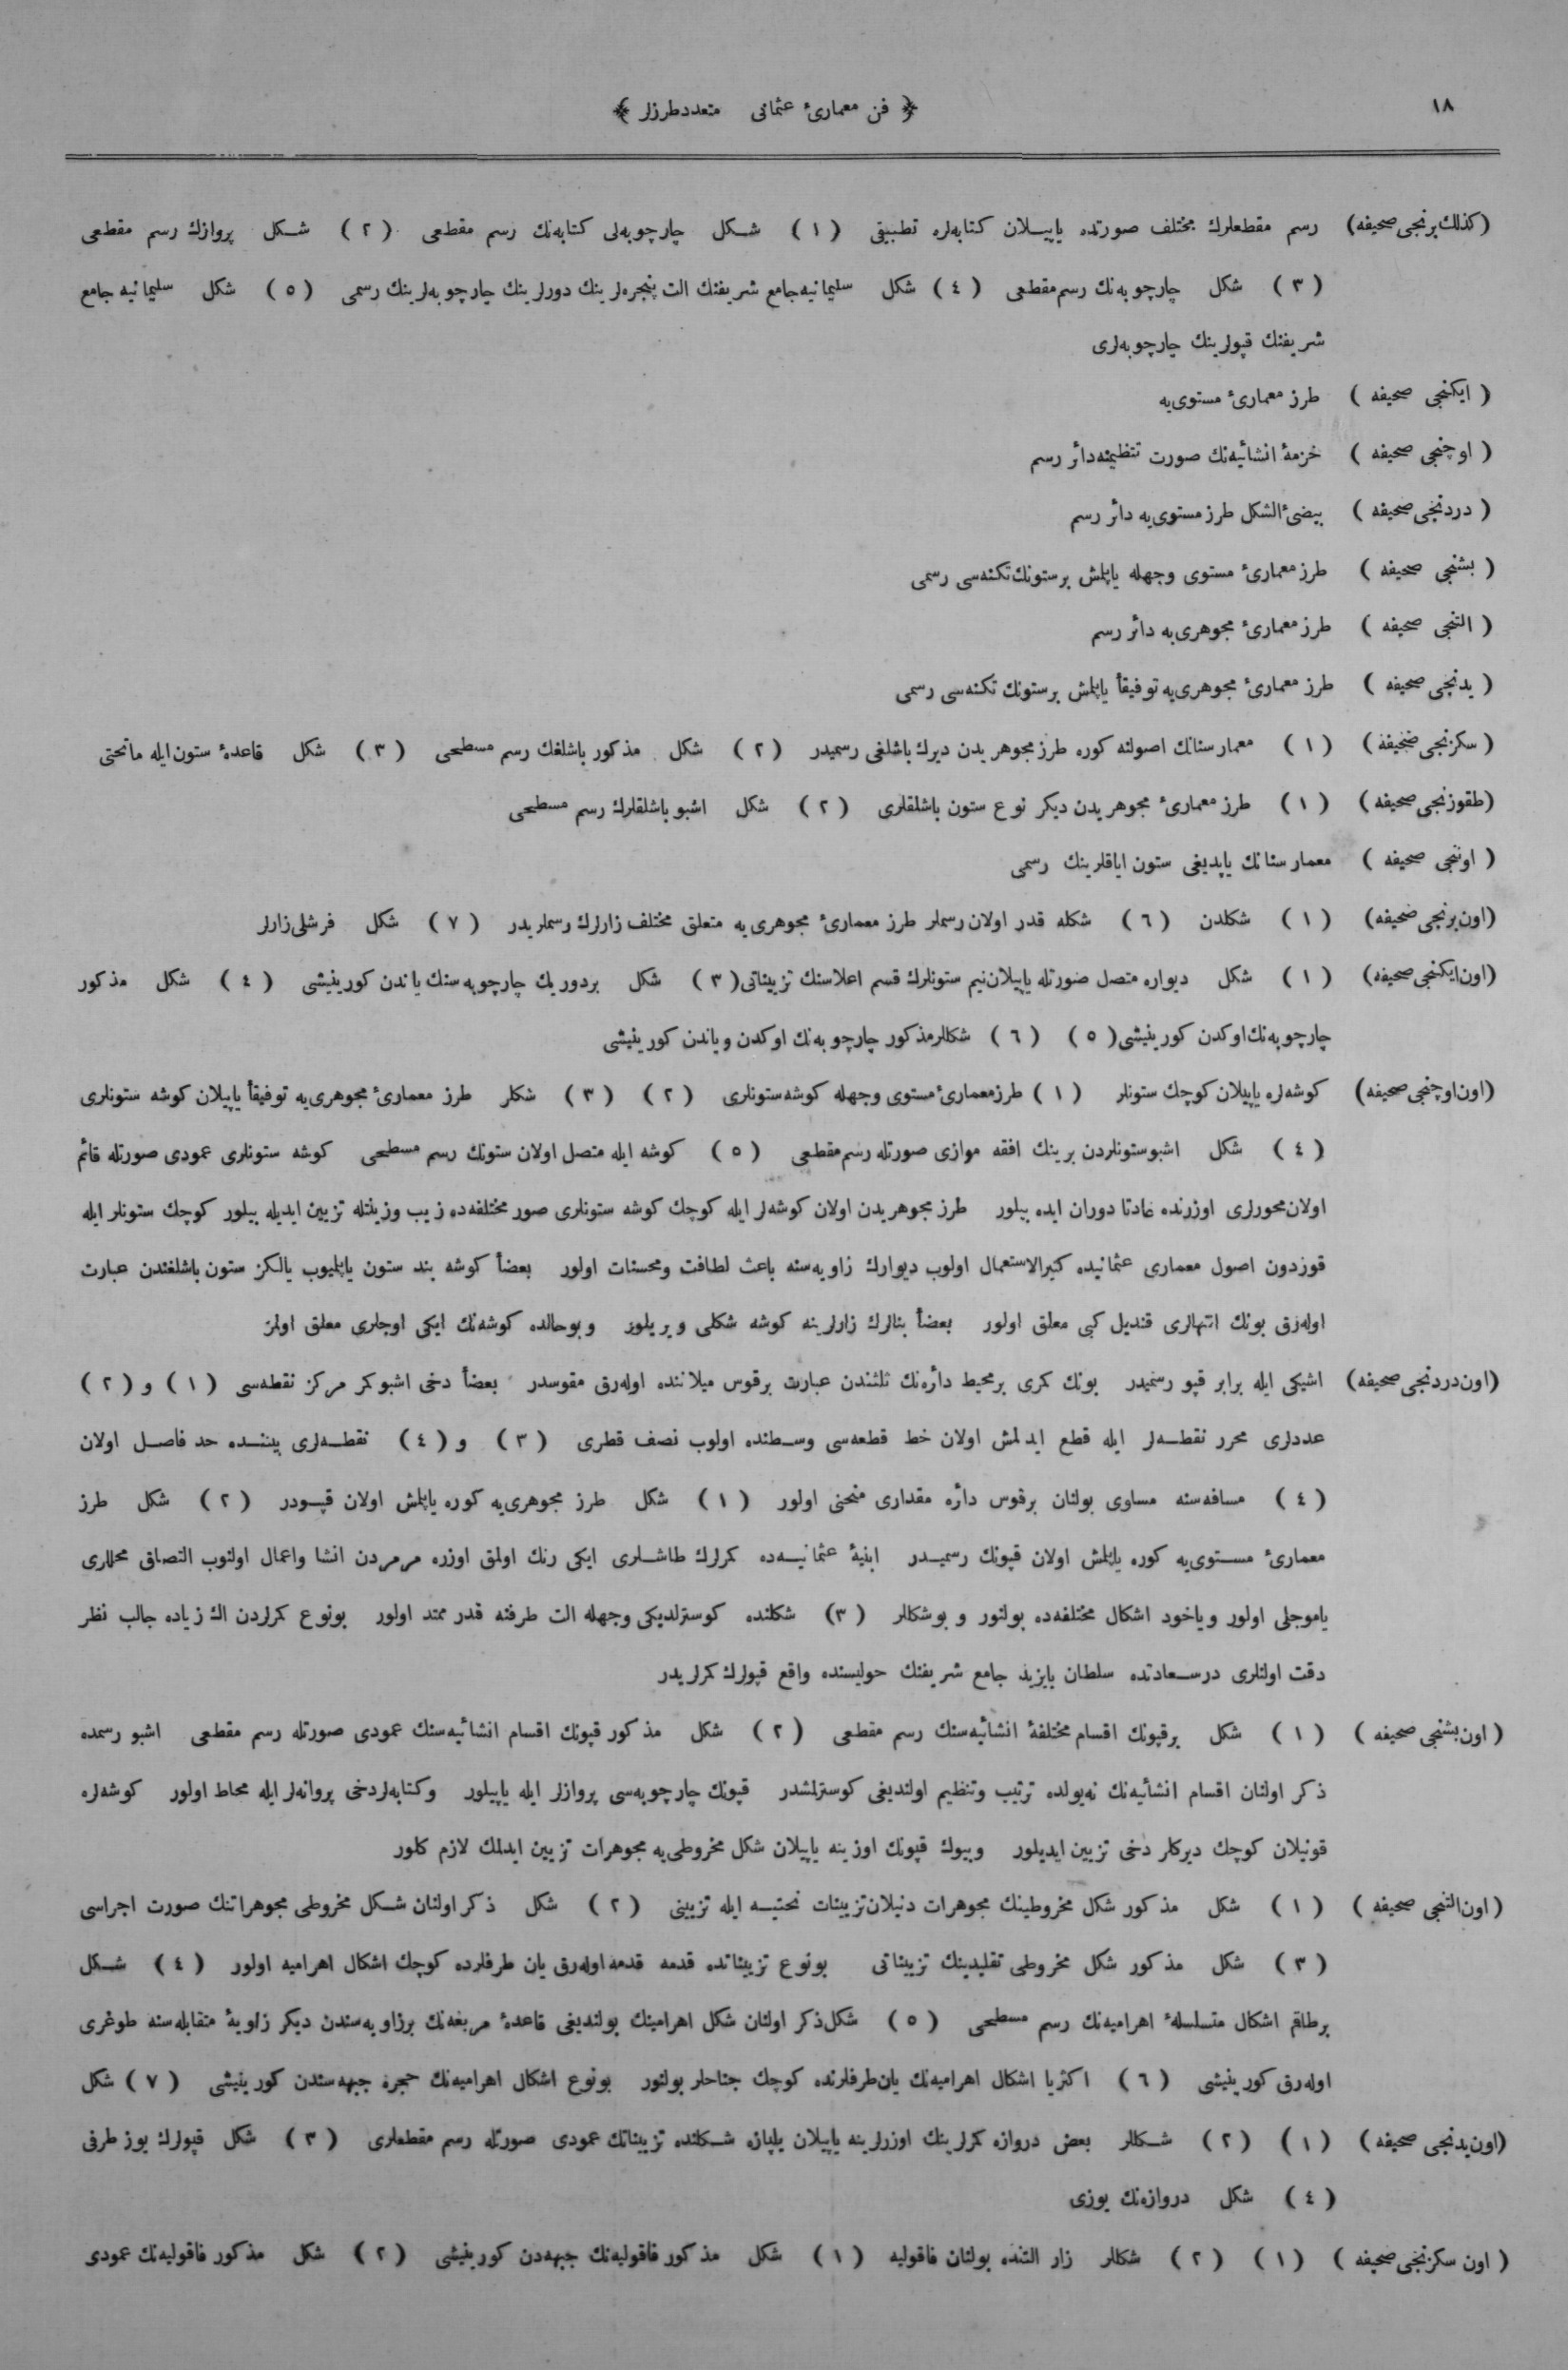 ١٨
﴿ فن معمارئ عثمانى متعدد طرزلر ﴾
(كذلك برنجى صحيفه) رسم مقطعلرك مختلف صورتده ياپيلان كتابه‌لره تطبيقى (١) شكل چارچوبه‌لى كتابه‌نك رسم مقطعى (٢) شكل پروازك رسم مقطعى
(٣) شكل چارچوبه‌نك رسم مقطعى (٤) شكل سليمانيه جامع شريفنك الت پنجره‌لرينك دورلرينك چارچوبه‌لرينك رسمى (٥) شكل سليمانيه جامع
شريفنك قپولرينك چارچوبه‌لرى
(ايكنجى صحيفه) طرز معمارئ مستوى‌يه
(اوچنجى صحيفه) خزمۀ انشائيه‌نك صورت تنظيمنه دائر رسم
(دردنجى صحيفه) بيضئ الشكل طرز مستوى‌يه دائر رسم
(بشنجى صحيفه) طرز معمارئ مستوى وجهله ياپلمش برستونك تكنه‌سى رسمى
(التنجى صحيفه) طرز معمارئ مجوهرى‌يه دائر رسم
(يدنجى صحيفه) طرز معمارئ مجوهرى‌يه توفيقاً ياپلمش برستونك تكنه‌سى رسمى
(سكزنجى صحيفه) (١) معمار سنانك اصولنه كوره طرز مجوهريدن ديرك باشلغى رسميدر (٢) شكل مذكور باشلغك رسم مسطحى (٣) شكل قاعدۀ ستون ايله ماتحتى
(طقوزنجى صحيفه) (١) طرز معمارئ مجوهريدن ديكر نوع ستون باشلقلرى (٢) شكل اشبو باشلقلرك رسم مسطحى
(اوننجى صحيفه) معمار سنانك ياپديغى ستون اياقلرينك رسمى
(اون برنجى صحيفه) (١) شكلدن (٦) شكله قدر اولان رسملر طرز معمارئ مجوهرى‌يه متعلق مختلف زارلرك رسملريدر (٧) شكل فرشلى زارلر
(اون ايكنجى صحيفه) (١) شكل ديواره متصل صورتله ياپيلان نيم ستونلرك قسم اعلاسنك تزييناتى (٣) شكل بردوريك چارچوبه سنك ياندن كورينيشى (٤) شكل مذكور
چارچوبه‌نك اوكدن كورينيشى (٥) (٦) شكللر مذكور چارچوبه‌نك اوكدن وياندن كورينيشى
(اون اوچنجى صحيفه) كوشه‌لره ياپيلان كوچك ستونلر (١) طرز معمارئ مستوى وجهله كوشه ستونلرى (٢) (٣) شكلر طرز معمارئ مجوهرى‌يه توفيقاً ياپيلان كوشه ستونلرى
(٤) شكل اشبو ستونلردن برينك افقه موازى صورتله رسم مقطعى (٥) كوشه ايله متصل اولان ستونك رسم مسطحى كوشه ستونلرى عمودى صورتله قائم
اولان محورلرى اوزرنده عادتا دوران ايده بيلور طرز مجوهريدن اولان كوشه‌لر ايله كوچك كوشه ستونلرى صور مختلفه‌ده زيب وزينتله تزيين ايديله بيلور كوچك ستونلر ايله
قوزدون اصول معمارى عثمانيده كثيرالاستعمال اولوب ديوارك زاويه‌سنه باعث لطافت ومحسنات اولور بعضاً كوشه بند ستون ياپليوب يالكز ستون باشلغندن عبارت
اوله‌رق بونك انتهالرى قنديل كبى معلق اولور بعضاً بنالرك زارلرينه كوشه شكلى ويريلور وبوحالده كوشه‌نك ايكى اوجلرى معلق اولمز
(اون دردنجى صحيفه) اشيكى ايله برابر قپو رسميدر بونك كمرى برمحيط دائره‌نك ثلثندن عبارت برقوس ميلاننده اوله‌رق مقوسدر بعضاً دخى اشبو كمر مركز نقطه‌سى (١) و (٢)
عددلرى محرر نقطه‌لر ايله قطع ايدلمش اولان خط قطعه‌سى وسطنده اولوب نصف قطرى (٣) و (٤) نقطه‌لرى بيننده حد فاصل اولان
(٤) مسافه‌سنه مساوى بولنان برقوس دائره مقدارى منحنى اولور (١) شكل طرز مجوهرى‌يه كوره ياپلمش اولان قپودر (٢) شكل طرز
معمارئ مستوى‌يه كوره ياپلمش اولان قپونك رسميدر ابنيۀ عثمانيه‌ده كمرلرك طاشلرى ايكى رنك اولمق اوزره مرمردن انشا واعمال اولنوب التصاق محللرى
ياموجلى اولور وياخود اشكال مختلفه‌ده بولنور وبوشكللر (٣) شكلنده كوسترلديكى وجهله الت طرفنه قدر ممتد اولور بونوع كمرلردن اك زياده جالب نظر
دقت اولنلرى درسعادتده سلطان بايزيد جامع شريفنك حوليسنده واقع قپولرك كمرلريدر
(اون بشنجى صحيفه) (١) شكل برقپونك اقسام مختلفۀ انشائيه‌سنك رسم مقطعى (٢) شكل مذكور قپونك اقسام انشائيه‌سنك عمودى صورتله رسم مقطعى اشبو رسمده
ذكر اولنان اقسام انشائيه‌نك نه‌يولده ترتيب وتنظيم اولنديغى كوسترلمشدر قپونك چارچوبه‌سى پروازلر ايله ياپيلور وكتابه‌لردخى پروانه‌لر ايله محاط اولور كوشه‌لره
قونيلان كوچك ديركلر دخى تزيين ايديلور وبيوك قپونك اوزينه ياپيلان شكل مخروطى‌يه مجوهرات تزيين ايدلمك لازم كلور
(اون التنجى صحيفه) (١) شكل مذكور شكل مخروطينك مجوهرات دنيلان تزيينات نحتيه ايله تزيينى (٢) شكل ذكر اولنان شكل مخروطى مجوهراتنك صورت اجراسى
(٣) شكل مذكور شكل مخروطى تقليدينك تزييناتى بونوع تزييناتده قدمه قدمه اوله‌رق يان طرفلرده كوچك اشكال اهراميه اولور (٤) شكل
برطاقم اشكال متسلسلۀ اهراميه‌نك رسم مسطحى (٥) شكل ذكر اولنان شكل اهرامينك بولنديغى قاعدۀ مربعه‌نك برزاويه‌سندن ديكر زاويۀ متقابله‌سنه طوغرى
اوله‌رق كورينيشى (٦) اكثريا اشكال اهراميه‌نك يان طرفلرنده كوچك جناحلر بولنور بونوع اشكال اهراميه‌نك حجره جبهه‌سندن كورينيشى (٧) شكل
(اون يدنجى صحيفه) (١) (٢) شكللر بعض دروازه كمرلرينك اوزرلرينه ياپيلان يلپازه شكلنده تزييناتك عمودى صورتله رسم مقطعلرى (٣) شكل قپولرك يوز طرفى
(٤) شكل دروازه‌نك يوزى
(اون سكزنجى صحيفه) (١) (٢) شكللر زار التنده بولنان فاقوليه (١) شكل مذكور فاقوليه‌نك جبهه‌دن كورينيشى (٢) شكل مذكور فاقوليه‌نك عمودى